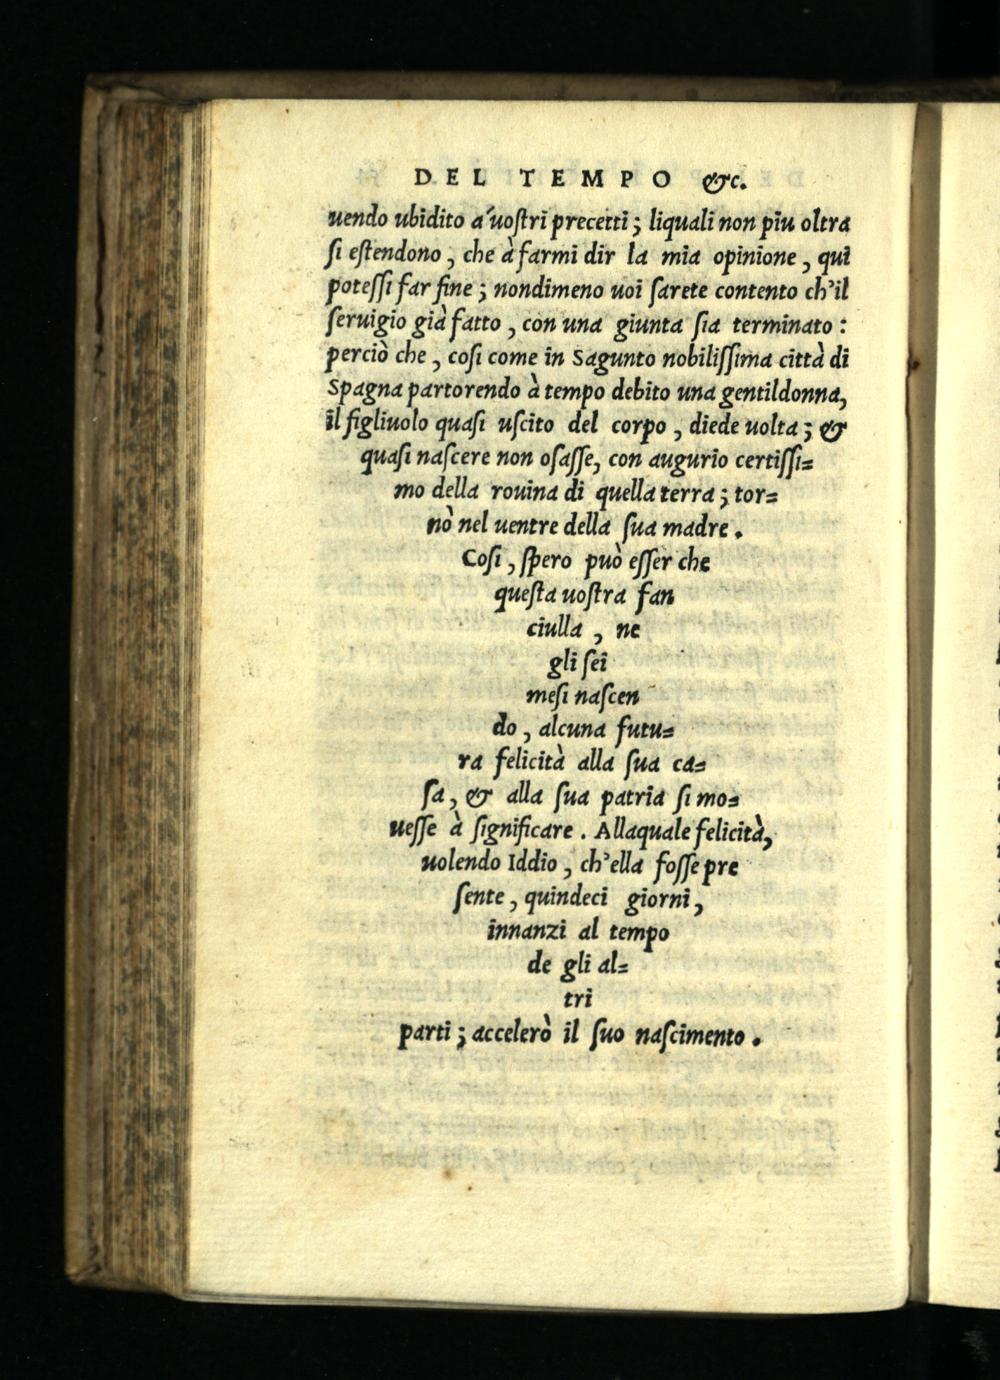 DEL TEMPO &c.
uendo ubidito a'uoſtri precetti; liquali non piu oltra
ſi eſtendono, che à farmi dir la mia opinione, qui
poteſſi far fine; nondimeno uoi ſarete contento ch'il
ſeruigio già fatto, con una giunta ſia terminato:
perciò che, coſi come in Sagunto nobiliſſima città di
Spagna partorendo à tempo debito una gentildonna,
il figliuolo quaſi uſcito del corpo, diede uolta; &
quaſi naſcere non oſaſſe, con augurio certiſſi=
mo della rouina di quella terra; tor=
nò nel uentre della ſua madre.
Coſi, ſpero può eſſer che
queſta uoſtra fan
ciulla, ne
gli ſei
meſi naſcen
do, alcuna futu=
ra felicità alla ſua ca=
ſa, & alla ſua patria ſi mo=
ueſſe à ſignificare. Allaquale felicità,
uolendo Iddio, ch'ella foſſe pre
ſente, quindeci giorni,
innanzi al tempo
de gli al=
tri
parti; accelerò il ſuo naſcimento.